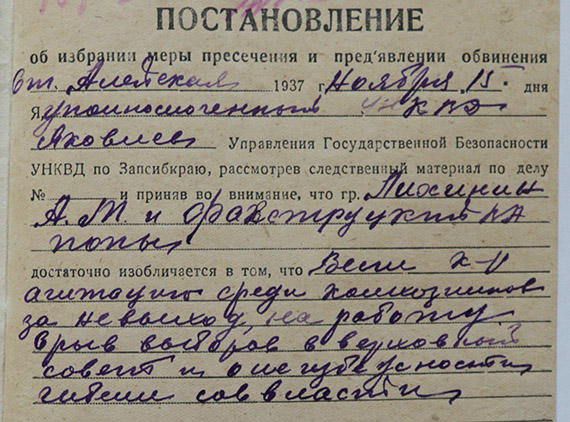 ПОСТАНОВЛЕНИЕ
об избрании меры пресечения и пред'явлении обвинения
ст. Алейская 1937 г. Ноября 15 дня
Я, уполномоченный
Яковлев Управления Государственной Безопасности
УНКВД по Запсибкраю, рассмотрев следственный материал по делу
№ и приняв во внимание, что гр.
А.М. и
попы
достаточно изобличается в том, что Вели к-р
агитацию среди колхозников
за невыход на работу
срыв выборов в верховный
совет и о
гибели соввласти